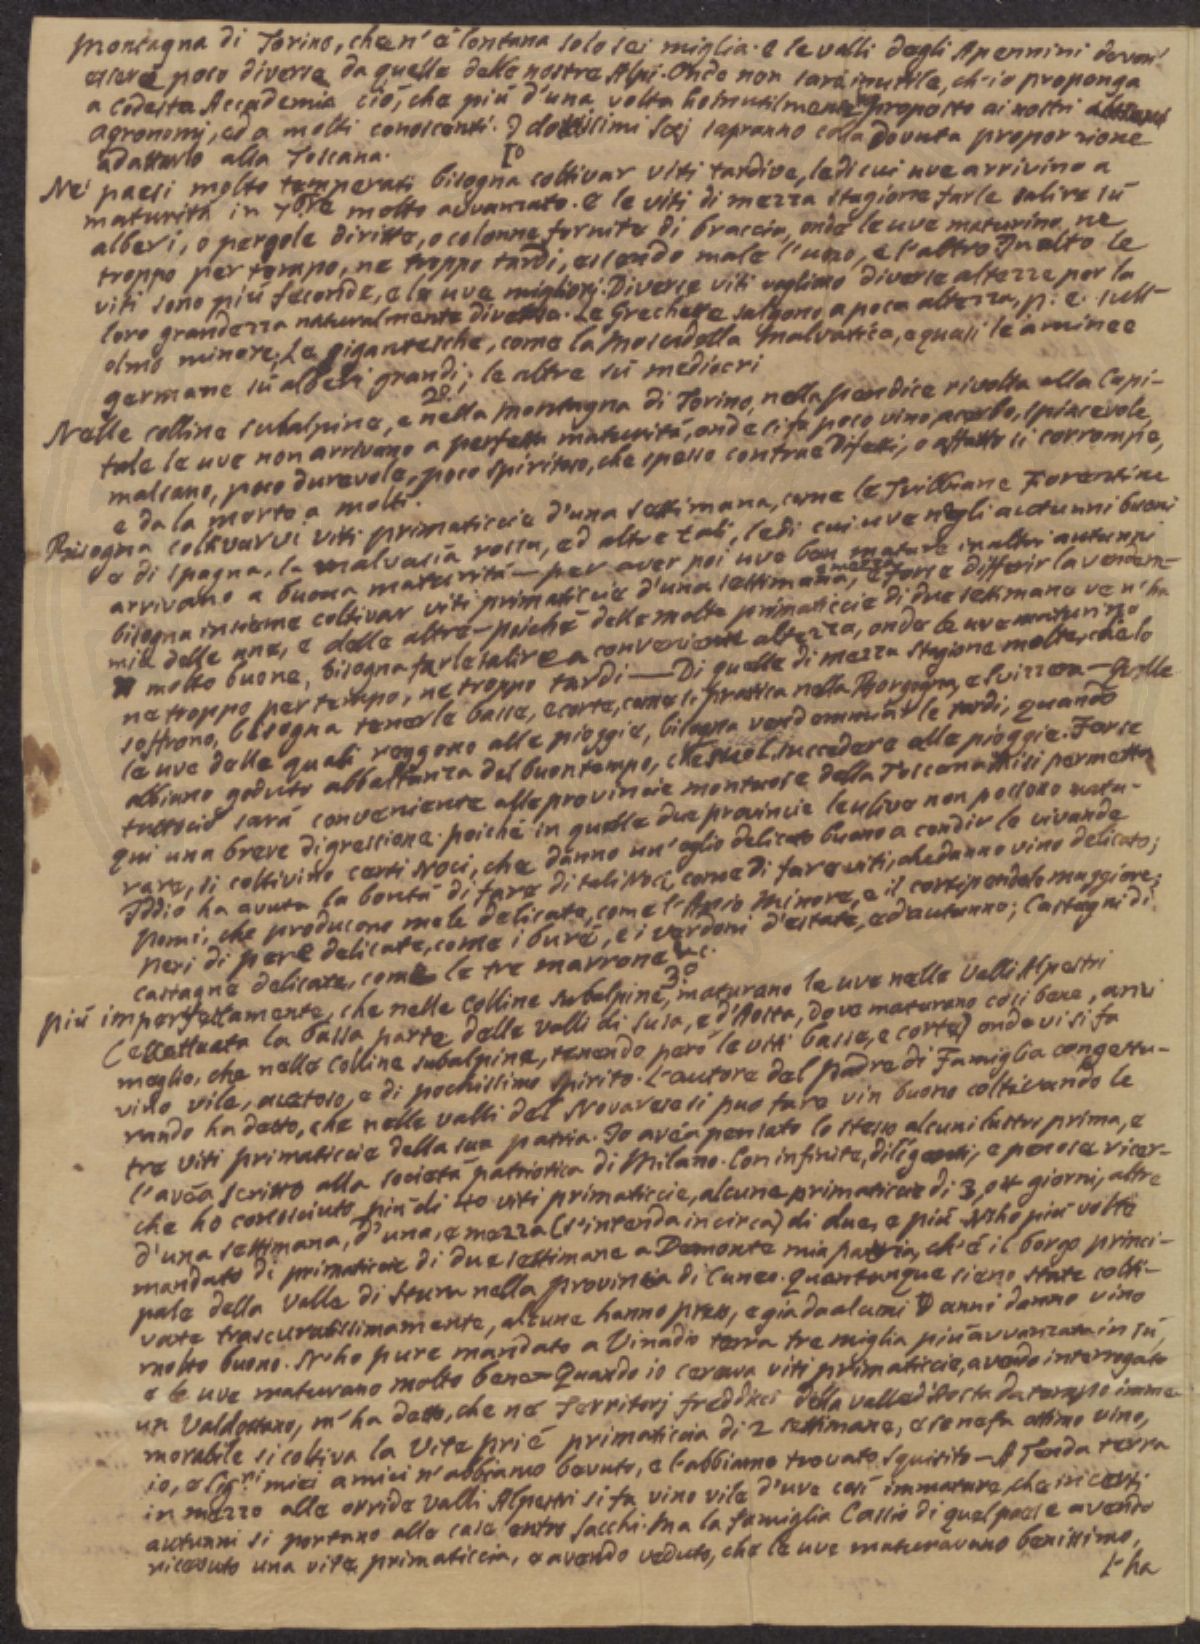 Montagna di Torino, che n'è lontana solo sei miglia. e le valli degli Apennini devon'
essere poco diverse da quelle delle nostre Alpi. Onde non sarà inutile, ch'io proponga
a codesta Accademia ciò, che più d'una volta ho inutilmente proposto ai nostri
Agronomi, ed a molti conoscenti. I dottissimi Socj sapranno colla dovuta proporzione
adattarlo alla Toscana.
1º
Ne' paesi molto temperati bisogna coltivar viti tardive, le di cui uve arrivino a
maturità in 7bre molto avvanzato. e le viti di mezza stagione farle salire sù
alberi, o pergole diritte, o colonne fornite di braccia, onde le uve maturino ne
troppo per tempo, ne troppo tardi, essendo male l'uno, e l'altro. In alto le
viti sono più feconde, e le uve migliori. Diverse viti vogliono diverse altezze per la
loro grandezza naturalmente diversa. Le Grechette salgono a poca altezza, p. e. sull'
olmo minore; Le gigantesche, come la Moscadella Malvatica, e quasi le aminee
germane sù alberi grandi; le altre sù mediocri
2º
Nelle colline subalpine, e nella montagna di Torino, nella pendice rivolta alla Capi-
tale le uve non arrivano a perfetta maturità, onde si fa poco vino, acerbo, spiacevole,
malsano, poco durevole, poco spiritoso, che spesso contrae difetti, o affatto si corrompe,
e da la morte a molti.
Bisogna coltivarvi viti primaticcie d'una settimana, come le Tribbiane Fiorentine
e di Spagna, la malvasia rossa, ed altre tali, le di cui uve negli autunni buoni
arrivano a buona maturità — per aver poi uve ben mature in altri autunni
bisogna insieme coltivar viti primaticcie d'una settimana, e mezza, e forse differir la vendem-
mia delle une, e delle altre — poichè delle molte primaticcie di due settimane ve n'ha
molto buone, bisogna farle salire a conveniente altezza, onde le uve maturino
ne troppo per tempo, ne troppo tardi — Di quelle di mezza stagione molte, che lo
soffrono, bisogna tenerle basse, e corte, come si pratica nella Borgogna, e Svizzera — Quelle
le uve delle quali reggono alle pioggie, bisogna vendemmiarle tardi, quando
abbiano goduto abbastanza del buon tempo, che suol succedere alle pioggie. Forse
tuttociò sarà conveniente alle provincie montuose della Toscana. Mi si permetta
qui una breve digressione. poichè in quelle due provincie le ulive non possono matu-
rare, si coltivino certi Noci, che danno un'oglio delicato buono a condir le vivande
Iddio ha avuta la bontà di fare di tali Noci, come di fare viti, che danno vino delicato;
Pomi, che producono mele delicate, come l'Appio Minore, e il cortipendolo maggiore;
Peri di pere delicate, come i burè, e i verdoni d'estate, ed autunno; Castagni di
castagne delicate, come le tre marrone &c.
3º
Più imperfettamente, che nelle colline subalpine, maturano le uve nelle Valli Alpestri
(eccettuata la bassa parte delle valli di Susa, e d'Aosta, dove maturano così bene, anzi
meglio, che nelle colline subalpine, tenendo però le viti basse, e corte) onde vi si fa
vino vile, acetoso, e di pochissimo spirito. L'autore del padre di Famiglia congettu-
rando ha detto, che nelle valli del Novarese si può fare vin buono coltivando le
tre viti primaticcie della sua patria. Io avèa pensato lo stesso alcuni lustri prima, e
l'avèa scritto alla società patriotica di Milano. Con infinite, diligenti, e penose ricer-
che ho conosciuto più di 40 viti primaticcie, alcune primaticcie di 3, o 4 giorni, altre
d'una settimana, d'una, e mezza (s'intenda in circa) di due, e più. N'ho più volte
mandato di primaticcie di due settimane a Demonte mia patria, ch'è il borgo princi-
pale della Valle di Stura nella provincia di Cuneo. Quantunque sieno state colti-
vate trascuratissimamente, alcune hanno preso, e già da alcuni anni danno vino
molto buono. N'ho pure mandato a Vinadio terra tre miglia più avvanzata in sù,
e le uve maturano molto bene — Quando io cercava viti primaticcie, avendo interrogato
un Valdostano, m'ha detto, che ne' Territorj freddicci della valle di Aosta da tempo imme-
morabile si coltiva la Vite priè primaticcia di 2 settimane, e se ne fa ottimo vino,
io, e Sig.ri miei amici n'abbiamo bevuto, e l'abbiamo trovato squisito — A Tenda terra
in mezzo alle orride valli Alpestri si fa vino vile d'uve così immature, che in certi
autunni si portano alle case entro sacchi. Ma la famiglia Cassio di quel paese avendo
ricevuto una vite primaticcia, e avendo veduto, che le uve maturavano benissimo,
l'ha